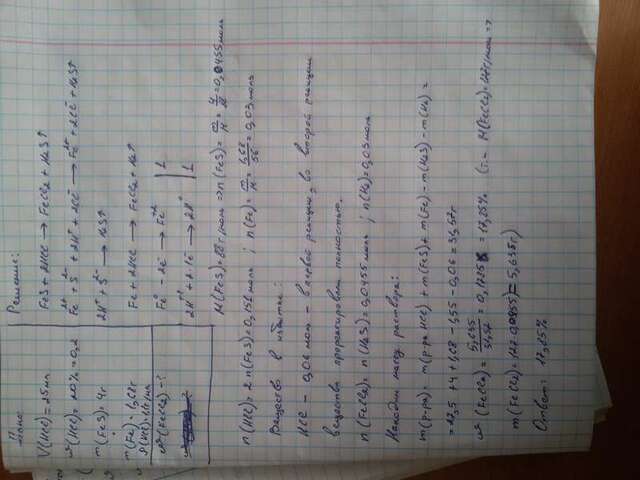 Дано:
V(HCl) = 25 мл
ω(HCl) = 20% = 0,2
m(FeS) = 4г
m(Fe) = 1,68г
ω(FeCl2) - ?
Решение:
FeS + 2HCl → FeCl2 + H2S↑
Fe2+ + S2- + 2H+ + 2Cl- → Fe2+ + 2Cl- + H2S↑
2H+ + S2- → H2S↑
Fe + 2HCl → FeCl2 + H2↑
Fe0 - 2e- → Fe+2 | 1
2H+ + 2·1e- → 2H0 | 1
M(FeS) = 88 г/моль ⇒ n(FeS) = m/M = 4/88 = 0,0455 моль
n(HCl) = 2n(FeS) = ; n(Fe) = m/M = 1,68/56 = 0,03 моль
Вещество в избытке:
HCl - 0,06 моль - в первой реакции, во второй реакции
вещества прореагировали полностью.
n(FeCl2) = n(H2S) = 0,0455 моль ; n(H2) = 0,03 моль
Находим массу раствора:
m(р-ра) = m(р-ра HCl) + m(FeS) + m(Fe) - m(H2S) - m(H2) =
= 27,5 + 4 + 1,68 - 1,55 - 0,06 = 31,57г
ω(FeCl2) = = 17,85%
m(FeCl2) = 5,635г
Ответ: 17,85%